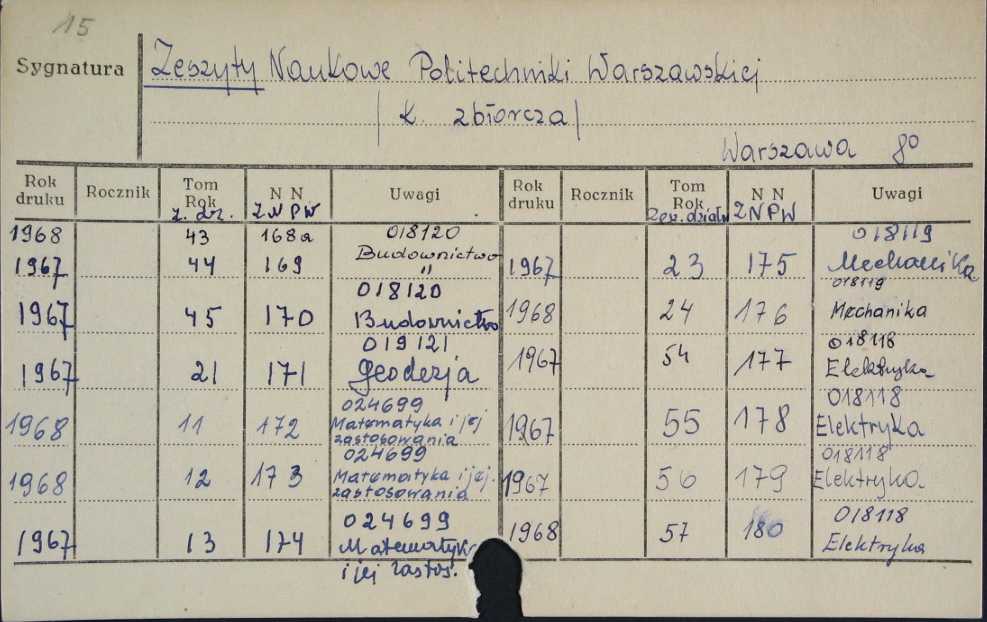 15
Sygnatura
Zeszyty Naukowe Politechniki Warszawskiej
/K. zbiorcza/
Warszawa 8º
Rok druku Rocznik Tom Rok z. dz. N N ZNPW Uwagi
1968 43 168a 018120
1967 44 169 Budownictwo
"
018120
1967 45 170 Budownictwo
019121
1967 21 171 Geodezja
024699
1968 11 172 Matematyka i jej
zastosowania
024699
1968 12 173 Matematyka i jej.
zastosowania
024699
1967 13 174 Matematyka
i jej zastos.
Rok druku Rocznik Tom Rok Zesz. działu N N ZNPW Uwagi
018119
1967 23 175 Mechanika
018119
1968 24 176 Mechanika
018118
1967 54 177 Elektryka
018118
1967 55 178 Elektryka
018118
1967 56 179 Elektryka
018118
1968 57 180 Elektryka